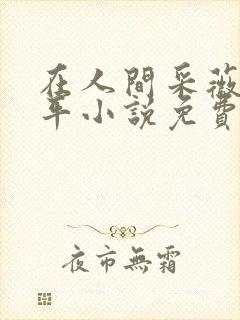 在人間采薇
年小說免費
夜市無霜